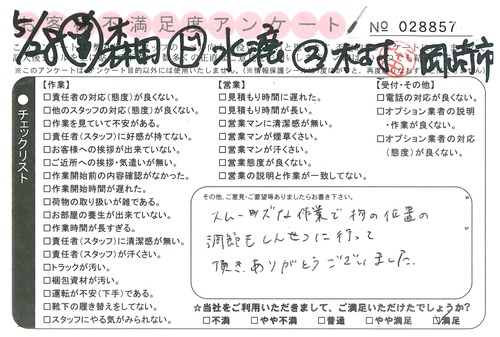 お客様不満足度アンケート
№ 028857
5/
水漉
岡崎市
※このアンケートはアンケート目的以外には使用いたしません。
●チェックリスト
【作業】
□責任者の対応(態度)が良くない。
□他のスタッフの対応(態度)が良くない。
□作業を見ていて安が有る。
□責任者(スタッフ)に好感が持てない。
□お客様への挨拶が出来ていない。
□ご近所への挨拶・気遣いが無い。
□作業開始前の内容確認がなかった。
□作業開始時間が遅れた。
□荷物の取り扱いが雑である。
□お部屋の養生が出来ていない。
□作業時間が長すぎる。
□責任者(スタッフ)に清潔感が無い。
□責任者(スタッフ)が汗くさい。
□トラックが汚い。
□梱包資材が汚い。
□運転が不安(下手)である。
□靴下の履き替えをしてない。
□スタッフにやる気がみられない。
【営業】
□見積もり時間に遅れた。
□見積もり時間が長い。
□営業マンに清潔感が無い。
□営業マンが煙草くさい。
□営業マンが汗くさい。
□営業態度が良くない。
□営業の説明と作業が一致してない。
【受付・その他】
□電話の対応が良くない。
□オプション業者の説明
・作業が良くない。
□オプション業者の対応
(態度)が良くない。
その他、ご意見・ご要望等ありましたらお書き下さい。
スムーズな作業で物の位置の
調節もしんせつに行って
頂きありがとうございました。
☆当社をご利用いただきまして、ご満足いただけたでしょうか?
□不満 □やや不満 □普通 □やや満足 ☑満足